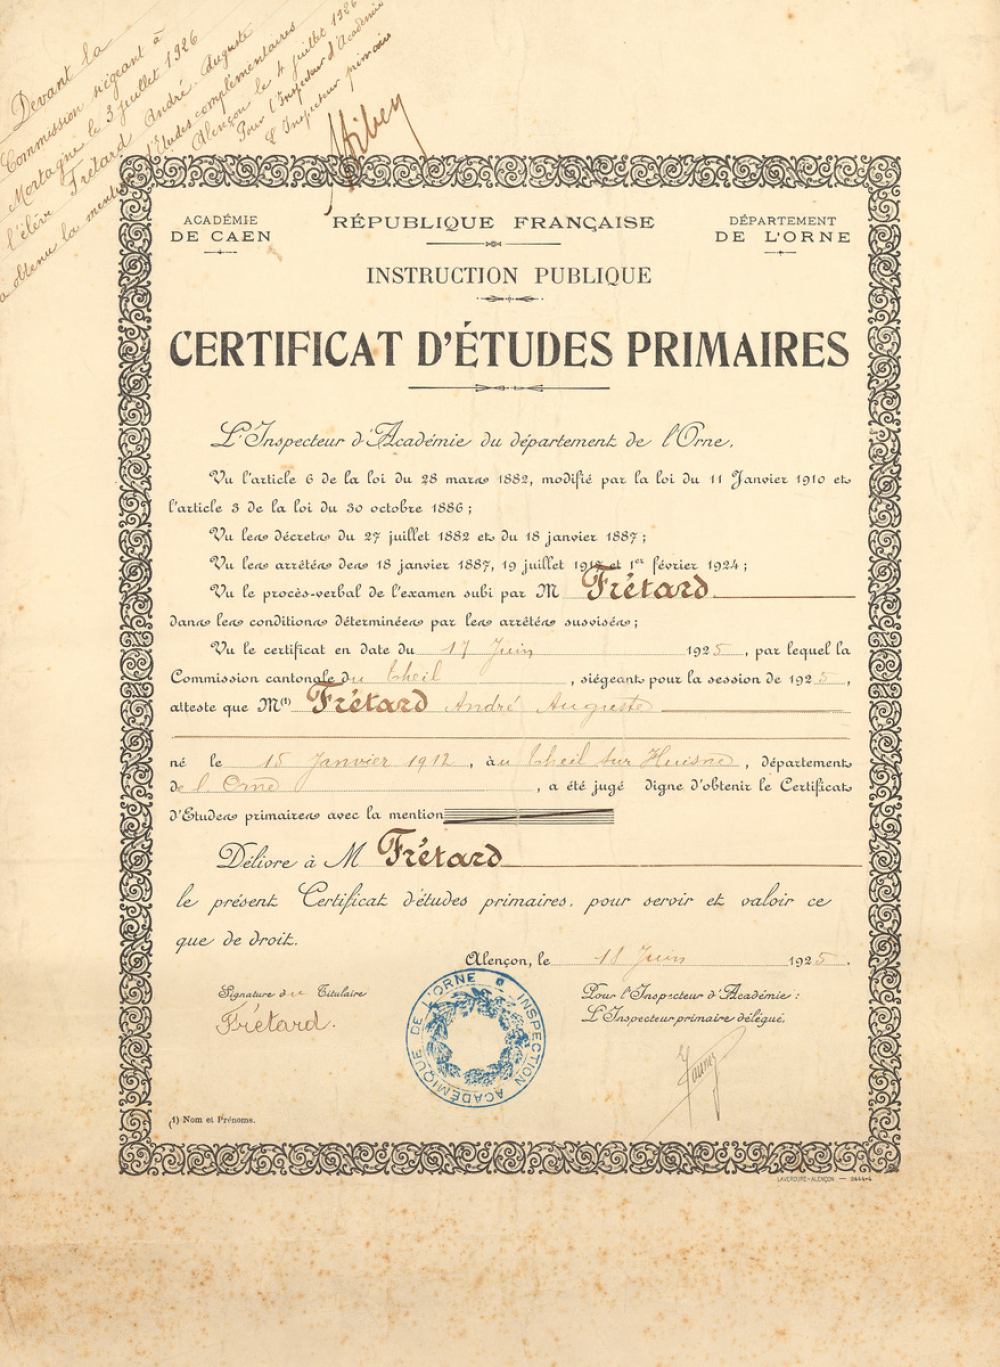 Devant la
Commission siégeant à
Mortagne le 3 juillet 1926
l'élève Frétard André Auguste
a obtenu la mention d'Etudes complémentaires
Alençon le 4 juillet 1926
Pour l'Inspecteur d'Académie
L'Inspecteur primaire
ACADÉMIE
DE CAEN
RÉPUBLIQUE FRANÇAISE
DÉPARTEMENT
DE L'ORNE
INSTRUCTION PUBLIQUE
CERTIFICAT D'ÉTUDES PRIMAIRES
L'Inspecteur d'Académie du département de l'Orne,
Vu l'article 6 de la loi du 28 mars 1882, modifié par la loi du 11 Janvier 1910 et
l'article 3 de la loi du 30 octobre 1886;
Vu les décrets du 27 juillet 1882 et du 18 janvier 1887;
Vu les arrêtés des 18 janvier 1887, 19 juillet 1917 et 1er février 1924;
Vu le procès-verbal de l'examen subi par M Frétard
dans les conditions déterminées par les arrêtés susvisés;
Vu le certificat en date du 17 Juin 1925, par lequel la
Commission cantonale du Theil, siégeant pour la session de 1925,
atteste que M(1) Frétard André Auguste
né le 15 Janvier 1912, au Theil sur Huisne, département
de l'Orne, a été jugé digne d'obtenir le Certificat
d'Etudes primaires avec la mention
Délivré à M Frétard
le présent Certificat d'études primaires, pour servir et valoir ce
que de droit.
Alençon, le 18 Juin 1925.
Signature du Titulaire
Frétard.
Pour l'Inspecteur d'Académie:
L'Inspecteur primaire délégué,
INSPECTION ACADÉMIQUE DE L'ORNE
(1) Nom et Prénoms.
LAVERDURE-ALENÇON — 2444-4